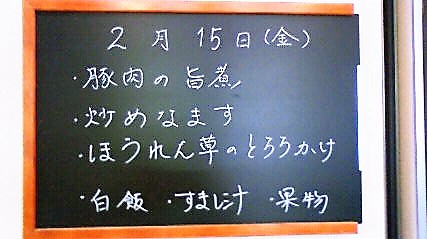 2月15日(金)
・豚肉の旨煮
・炒めなます
・ほうれん草のとろろかけ
・白飯 ・すまし汁 ・果物